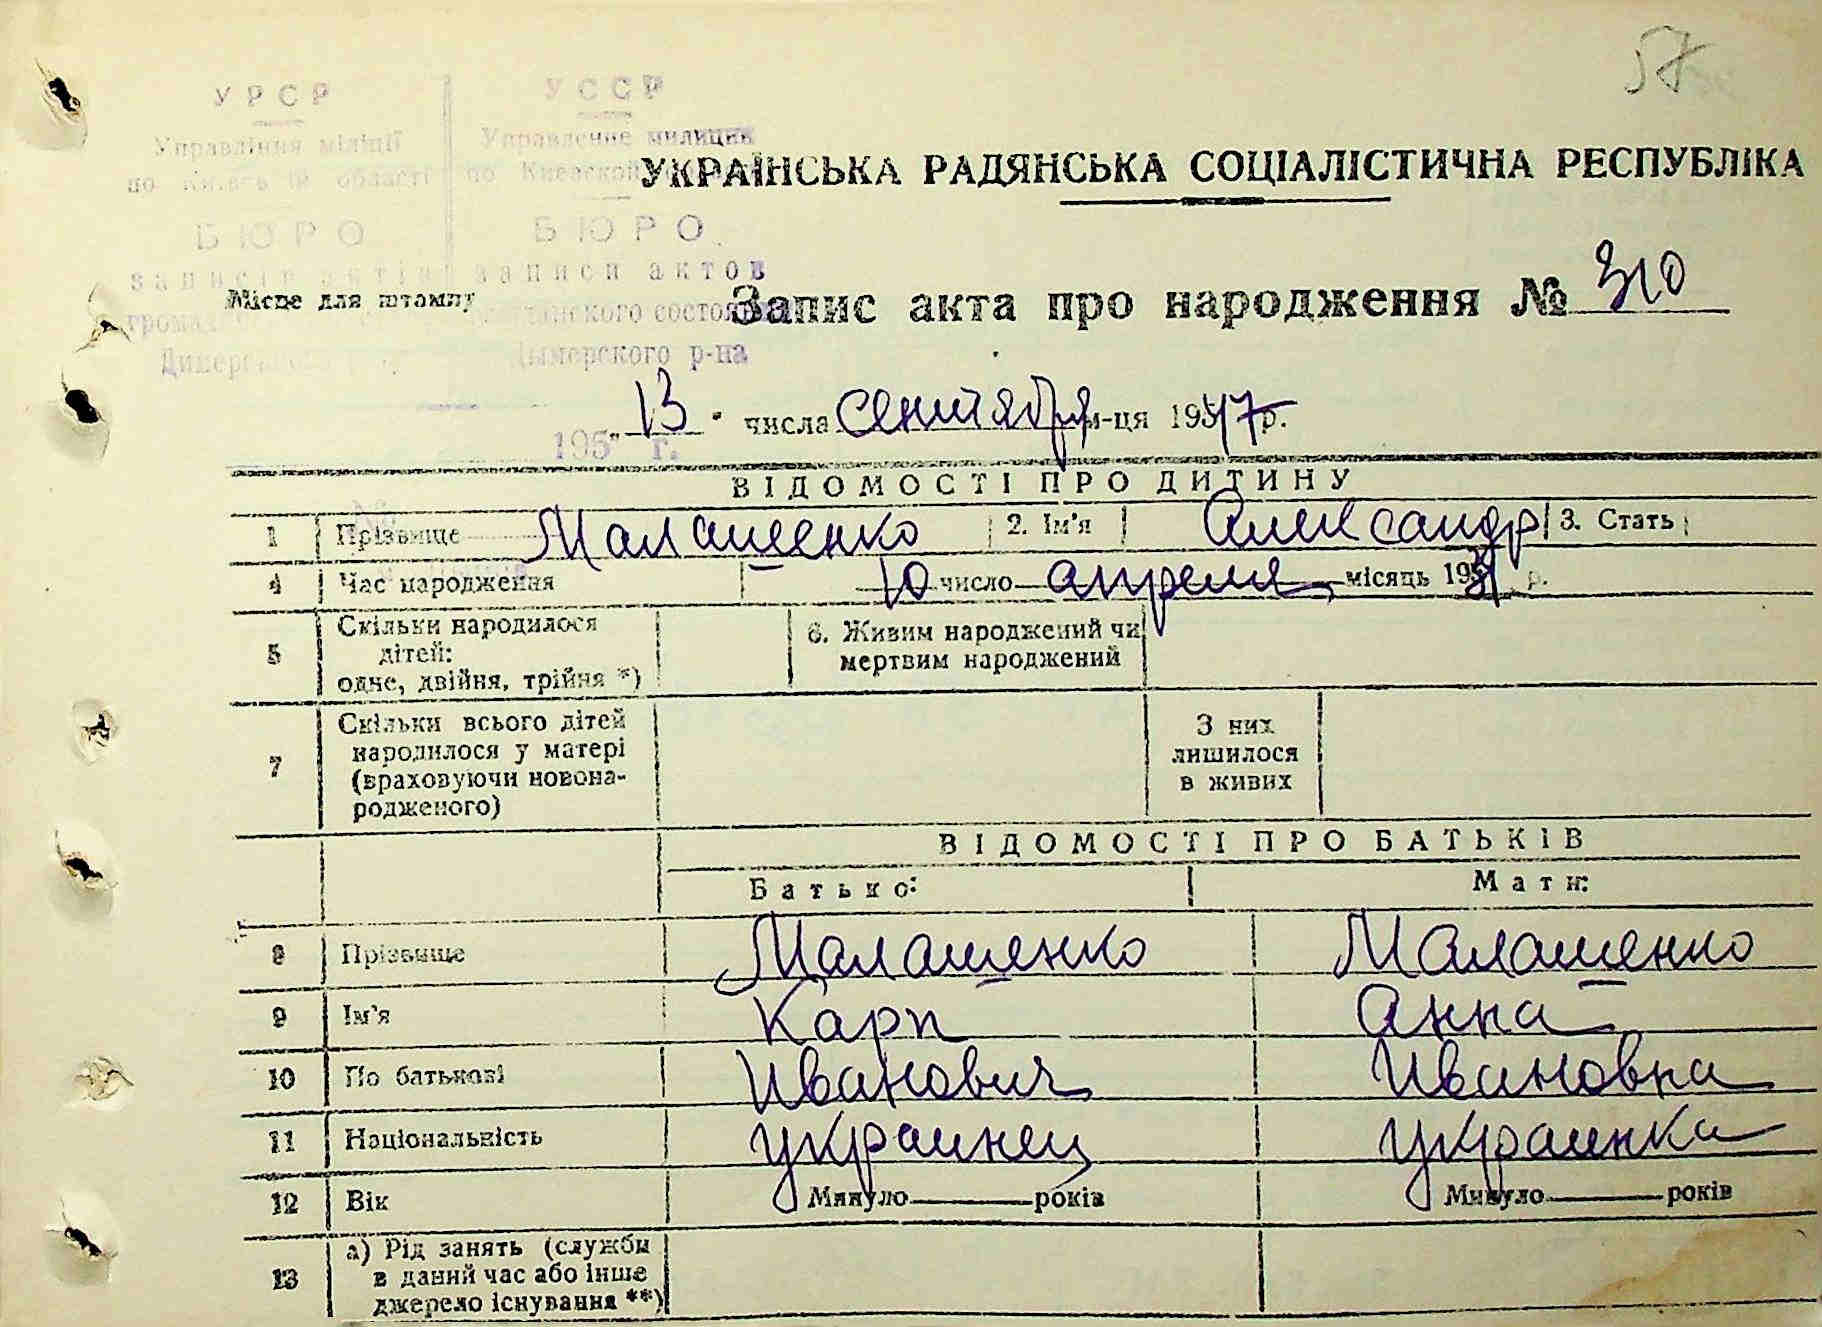 57
УРСР УССР
Управління міліції Управление милиции
по Київській області по Киевской
УКРАЇНСЬКА РАДЯНСЬКА СОЦІАЛІСТИЧНА РЕСПУБЛІКА
БЮРО БЮРО
записів актів записи актов
Місце для штампу
Запис акта про народження № 310
Дымерского р-на
„13" числа сентября м-ця 1957 р.
195 г.
ВІДОМОСТІ ПРО ДИТИНУ
1 Прізвище Малашенко 2. Ім'я Александр 3. Стать
4 Час народження 10 число апреля місяць 195 р.
5 Скільки народилося дітей: одне, двійня, трійня *) 6. Живим народжений чи мертвим народжений
7 Скільки всього дітей народилося у матері (враховуючи новонародженого) З них лишилося в живих
ВІДОМОСТІ ПРО БАТЬКІВ
Батько: Мати:
8 Прізвище Малашенко Малашенко
9 Ім'я Карп Анна
10 По батькові Иванович Ивановна
11 Національність украинец украинка
12 Вік Минуло років Минуло років
13 а) Рід занять (службы в даний час або інше джерело існування **)